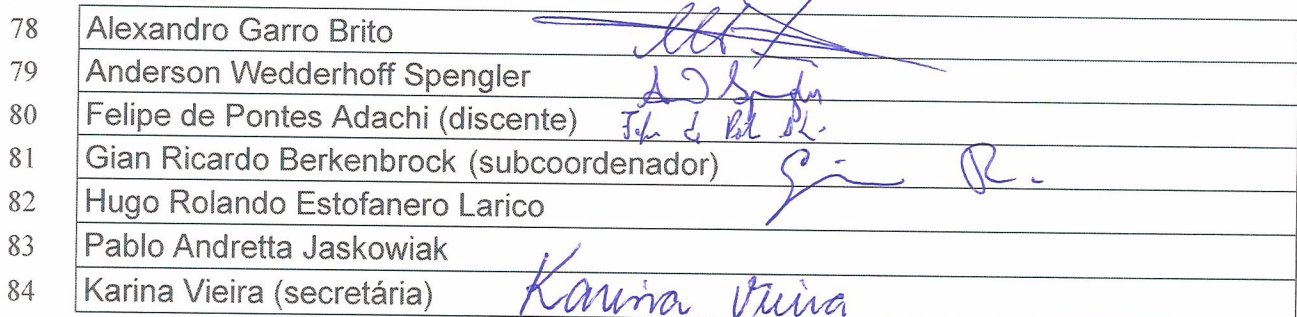 78 Alexandro Garro Brito
79 Anderson Wedderhoff Spengler
80 Felipe de Pontes Adachi (discente)
81 Gian Ricardo Berkenbrock (subcoordenador)
82 Hugo Rolando Estofanero Larico
83 Pablo Andretta Jaskowiak
84 Karina Vieira (secretária) Karina Vieira